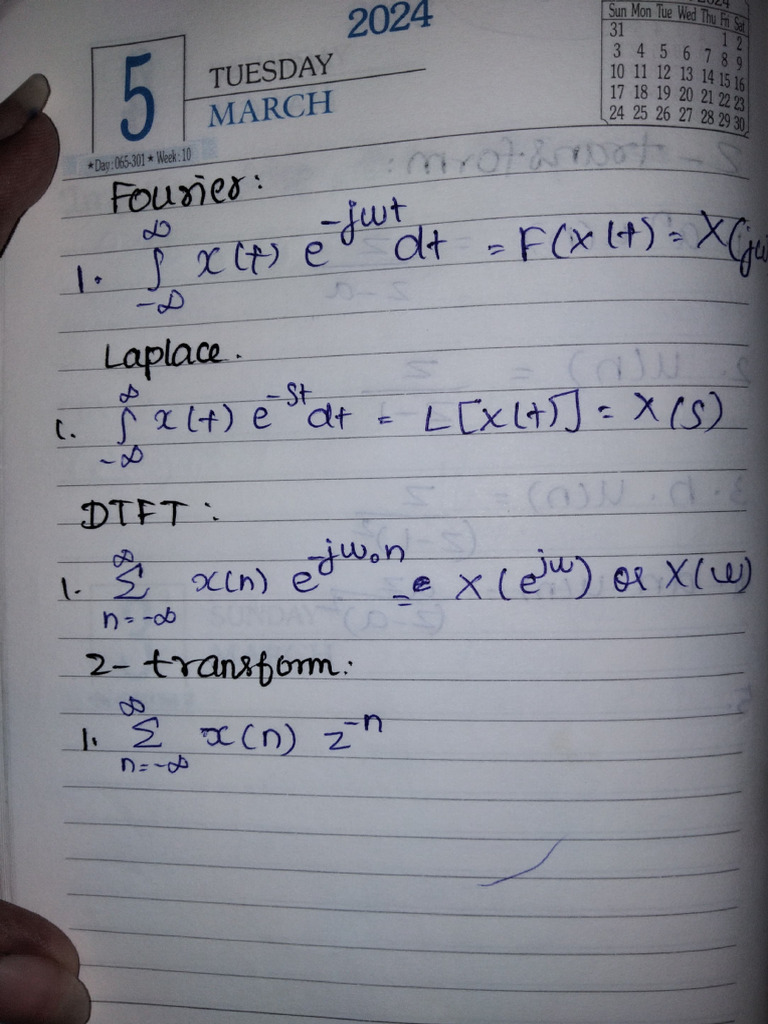 2024
5
TUESDAY
MARCH
★Day:065-301★Week:10
2024
Sun Mon Tue Wed Thu Fri Sat
31 1 2
3 4 5 6 7 8 9
10 11 12 13 14 15 16
17 18 19 20 21 22 23
24 25 26 27 28 29 30
Fourier:
1. ∫_{-∞}^{∞} x(t) e^{-jωt} dt = F(x(t) = X(jω
Laplace.
1. ∫_{-∞}^{∞} x(t) e^{-st} dt = L[x(t)] = X(s)
DTFT:
1. Σ_{n=-∞}^{∞} x(n) e^{-jω₀n} = X(e^{jω}) or X(ω)
Z-transform:
1. Σ_{n=-∞}^{∞} x(n) z^{-n}